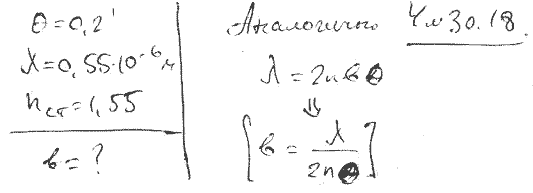 θ = 0,2'
λ = 0,55·10⁻⁶ м
n ст = 1,55
b = ?
Аналогично Ч м 30.18.
λ = 2nbθ
⇓
[b = λ / 2nθ]